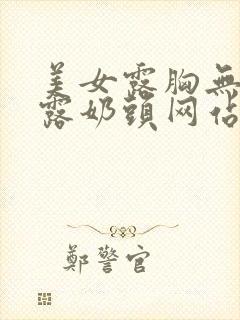 美女露胸無
露奶頭网佔
鄭警官